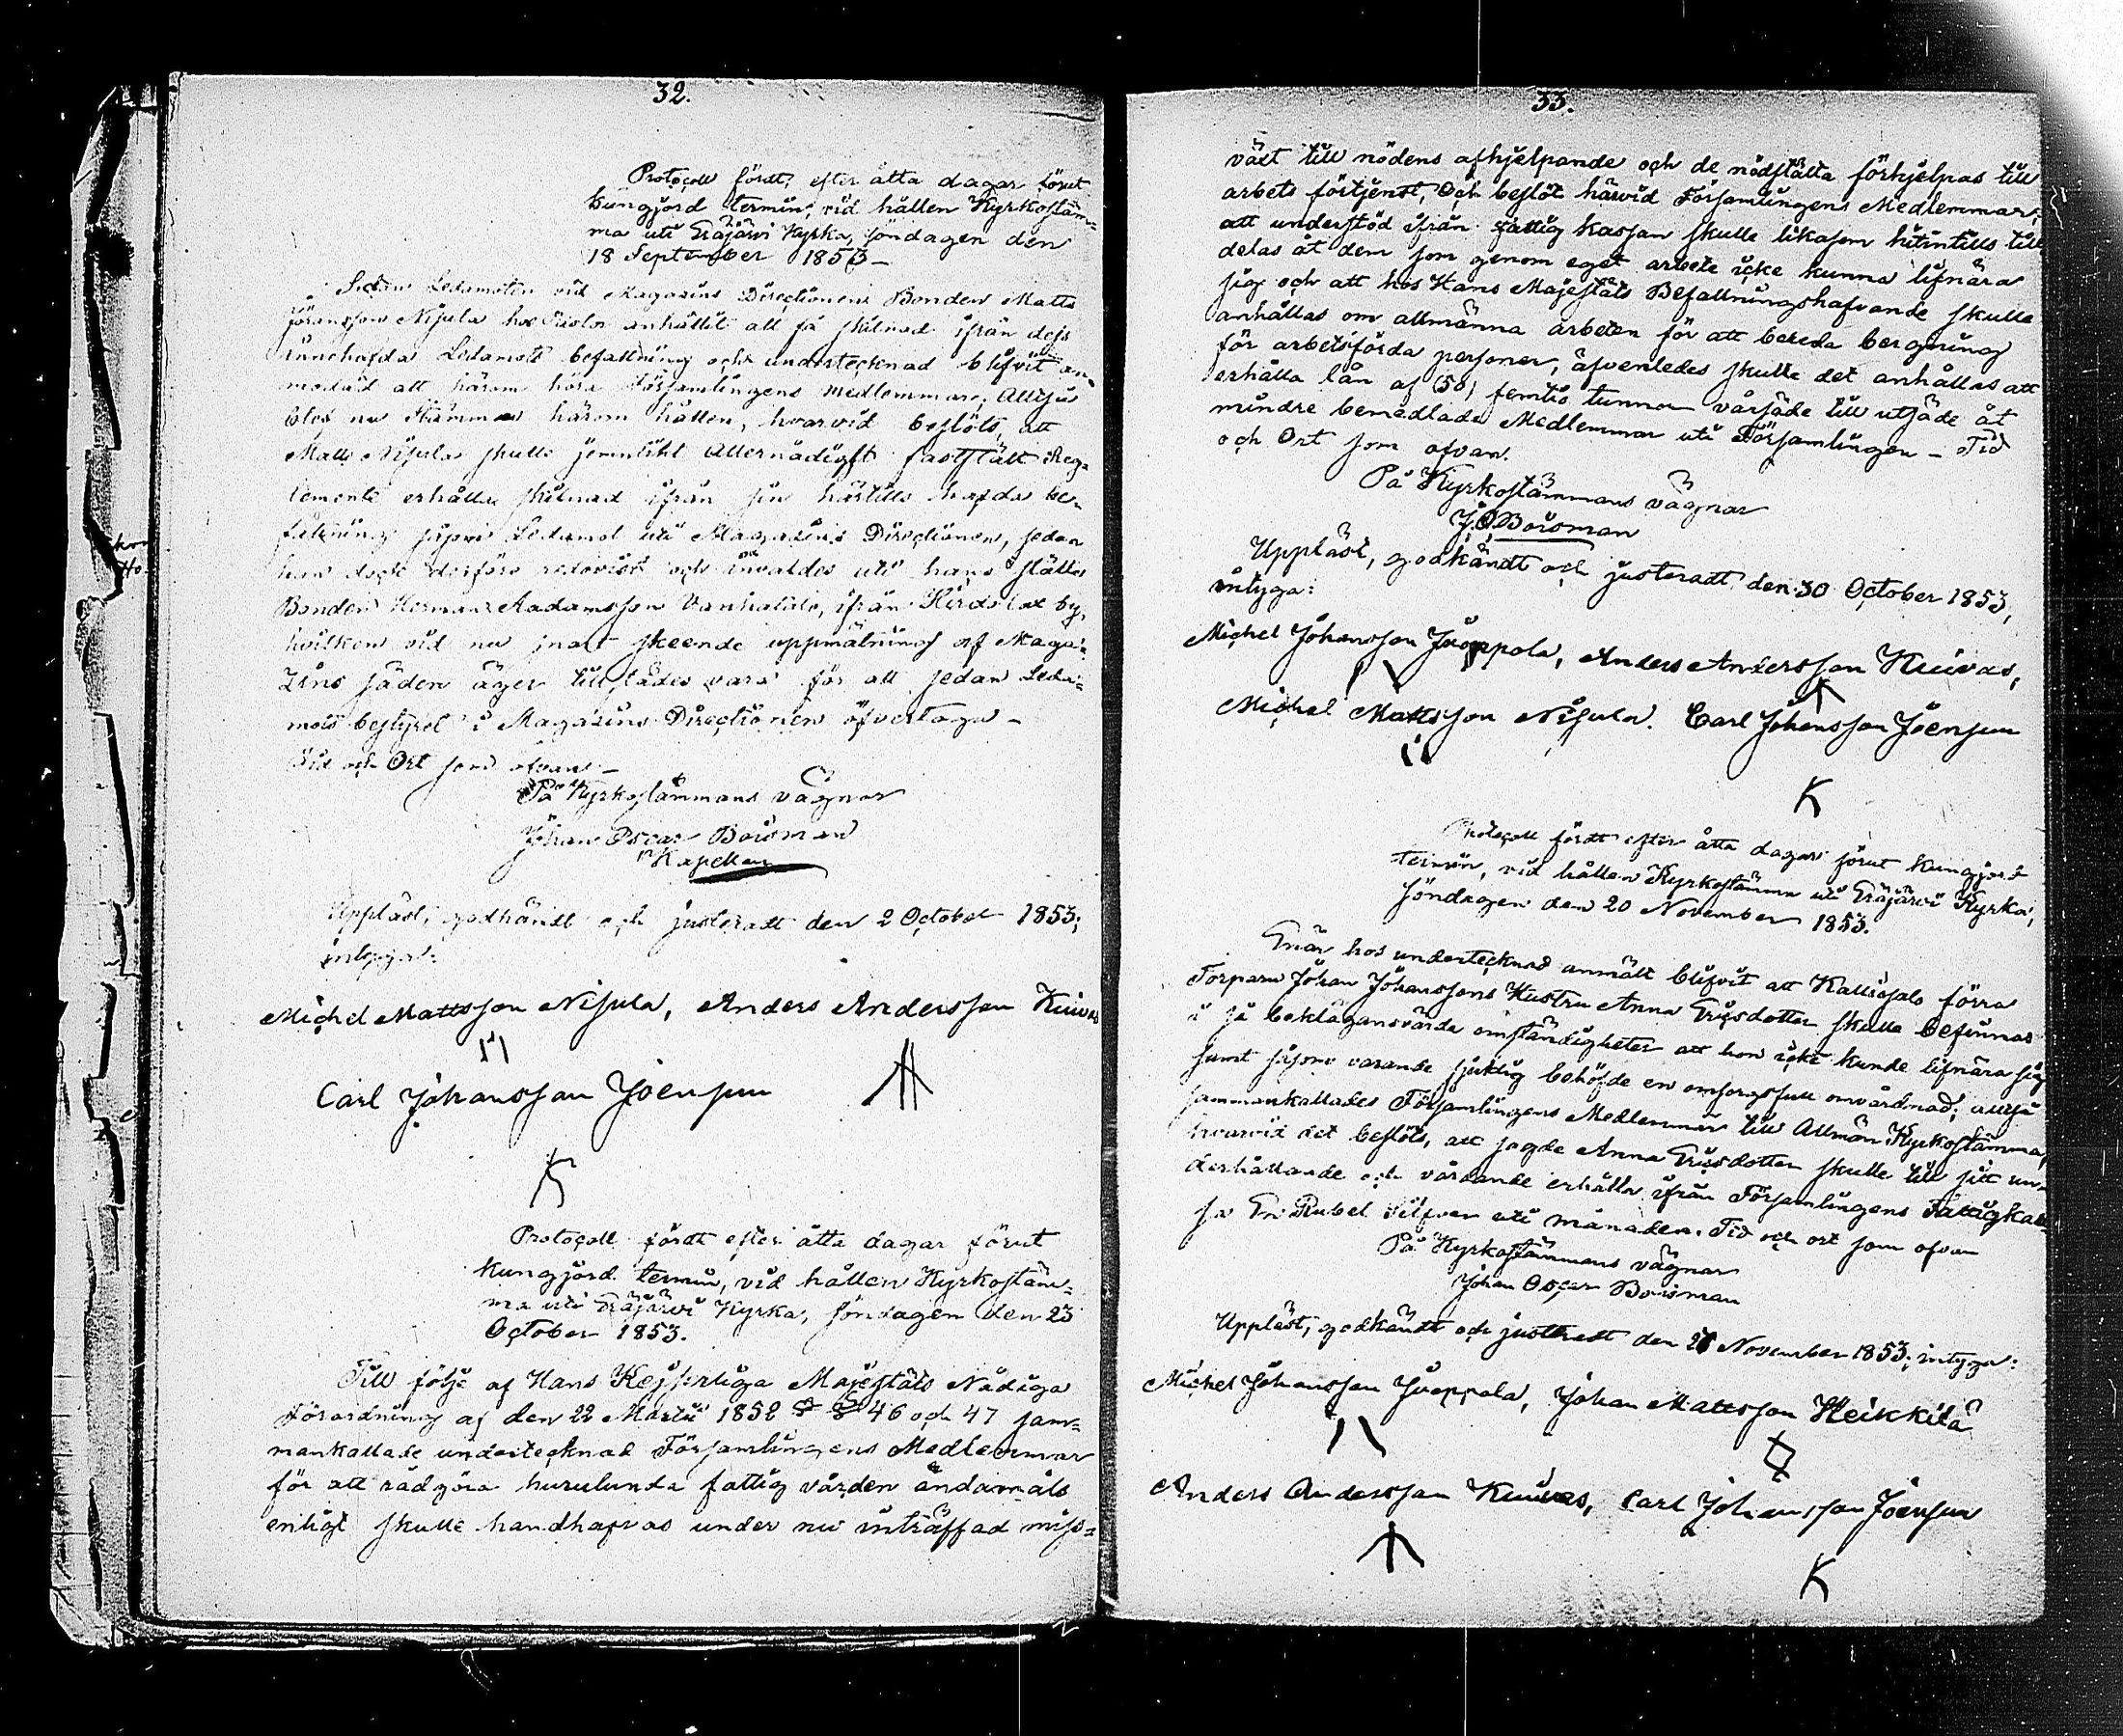 32.
Protocoll fördt, efter åtta dagar förut
kungjord termin, vid hållen Kyrkostäm-
ma uti Eräjärvi Kyrka, söndagen den
18 September 1853 –
Sedan Ledamoten vid Magasins Directionen Bonden Matts
Jöransson Nisula hos anhållit att få skilnad ifrån dess
innehafda Ledamots befattning och undertecknad blifvit an-
modad att härom höra Församlingens medlemmar; Alltså
blef nu Stämman härom hållen, hvarvid beslöts att
Matts Nisula skulle jemnlikt Allernådigst fastställt Reg-
lemente erhålla skilnad ifrån sin härtills hafda be-
fattning såsom Ledamot uti Magasins Directionen, sedan
han dock derföre redovist och invaldes uti hans ställe
Bonden Herman Aadamsson Vanhatalo, ifrån Hirdolax by,
hvilken vid nu snart skeende uppmätning af Maga-
zins säden äger tillstädes vara för att sedan Leda-
mots bestyret i Magasins Directionen öfvertaga –
Tid och Ort som ofvan –
På Kyrkostämmans vägnar
Johan Oscar Boisman
Kapellan
Uppläst, godkändt och justeradt den 2 October 1853;
intyga:
Michel Mattsson Nisula, Anders Andersson Kuivas
Carl Johansson Joensuu
Protocoll fördt efter åtta dagar förut
kungjord termin, vid hållen Kyrkostäm-
ma uti Eräjärvi Kyrka, söndagen den 23
October 1853.
Till följe af Hans Kejserliga Majestäts Nådiga
Förordning af den 22 Martii 1852 § § 46 och 47 sam-
mankallade undertecknad Församlingens Medlemmar
för att rådgöra hurulunda fattig vården ändamåls
enligt skulle handhafvas under nu inträffad miss-
33.
växt till nödens afhjelpande och de nödstälta förhjelpas till
arbets förtjenst, Och beslöt härvid Församlingens Medlemmar,
att understöd ifrån fattig kassan skulle likasom hitintills till
delas åt dem som genom eget arbete icke kunna lifnära
sig och att hos Hans Majestäts Befallningshafvande skulle
anhållas om allmänna arbeten för att bereda bergning
för arbetsförda personer, äfvenledes skulle det anhållas att
erhålla lån af (50) femtio tunnor vårsäde till utsäde åt
mindre bemedlade Medlemmar uti Församlingen – Tid
och Ort som ofvan.
På Kyrkostämmans vägnar
J. O. Boisman
Uppläst, godkändt och justeradt den 30 October 1853,
intyga:
Michel Johansson Juoppola, Anders Andersson Kuivas,
Michel Mattsson Nisula. Carl Johansson Joensuu
Protocoll fördt efter åtta dagar förut kungjord
termin, vid hållen Kyrkostämma uti Eräjärvi Kyrka,
söndagen den 20 November 1853.
Enär hos undertecknad anmält blifvit att Kalliosalo förra
Torparn Johan Johanssons Hustru Anna Ericsdotter skulle befinnas
i så beklagansvärda omständigheter att hon icke kunde lifnära sig
samt såsom varande sjuklig behöfde en omsorgsfull omvårdnad; alltså
sammankallades Församlingens Medlemmar till Allmän Kyrkostämma,
hvarvid det beslöts, att sagde Anna Ericsdotter skulle till sitt un-
derhållande och vårdande erhålla ifrån Församlingens Fattigkas-
sa En Rubel Silfver uti månaden. Tid och ort som ofvan
På Kyrkostämmans vägnar
Johan Oscar Boisman
Uppläst, godkändt och justeradt den November 1853; intyga:
Michel Johansson Juoppola, Johan Mattsson Heikkilä
Anders Andersson Kuivas, Carl Johansson Joensuu